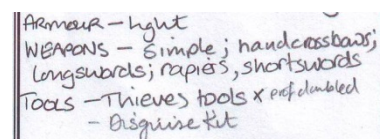 ARMOUR – light
WEAPONS – Simple; handcrossbows;
longswords; rapiers, shortswords
TOOLS – Thieves tools x prof doubled
– Disguise Kit